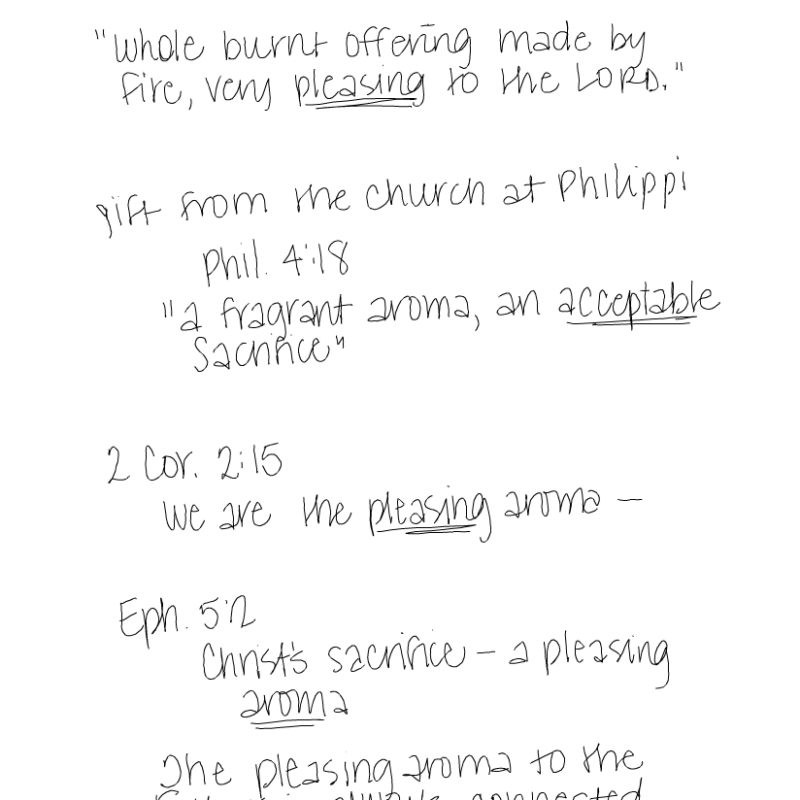 "whole burnt offering made by
fire, very pleasing to the LORD."
gift from the church at Philippi
Phil. 4:18
"a fragrant aroma, an acceptable
sacrifice"
2 Cor. 2:15
we are the pleasing aroma —
Eph. 5:2
Christ's sacrifice — a pleasing
aroma
The pleasing aroma to the
always connected